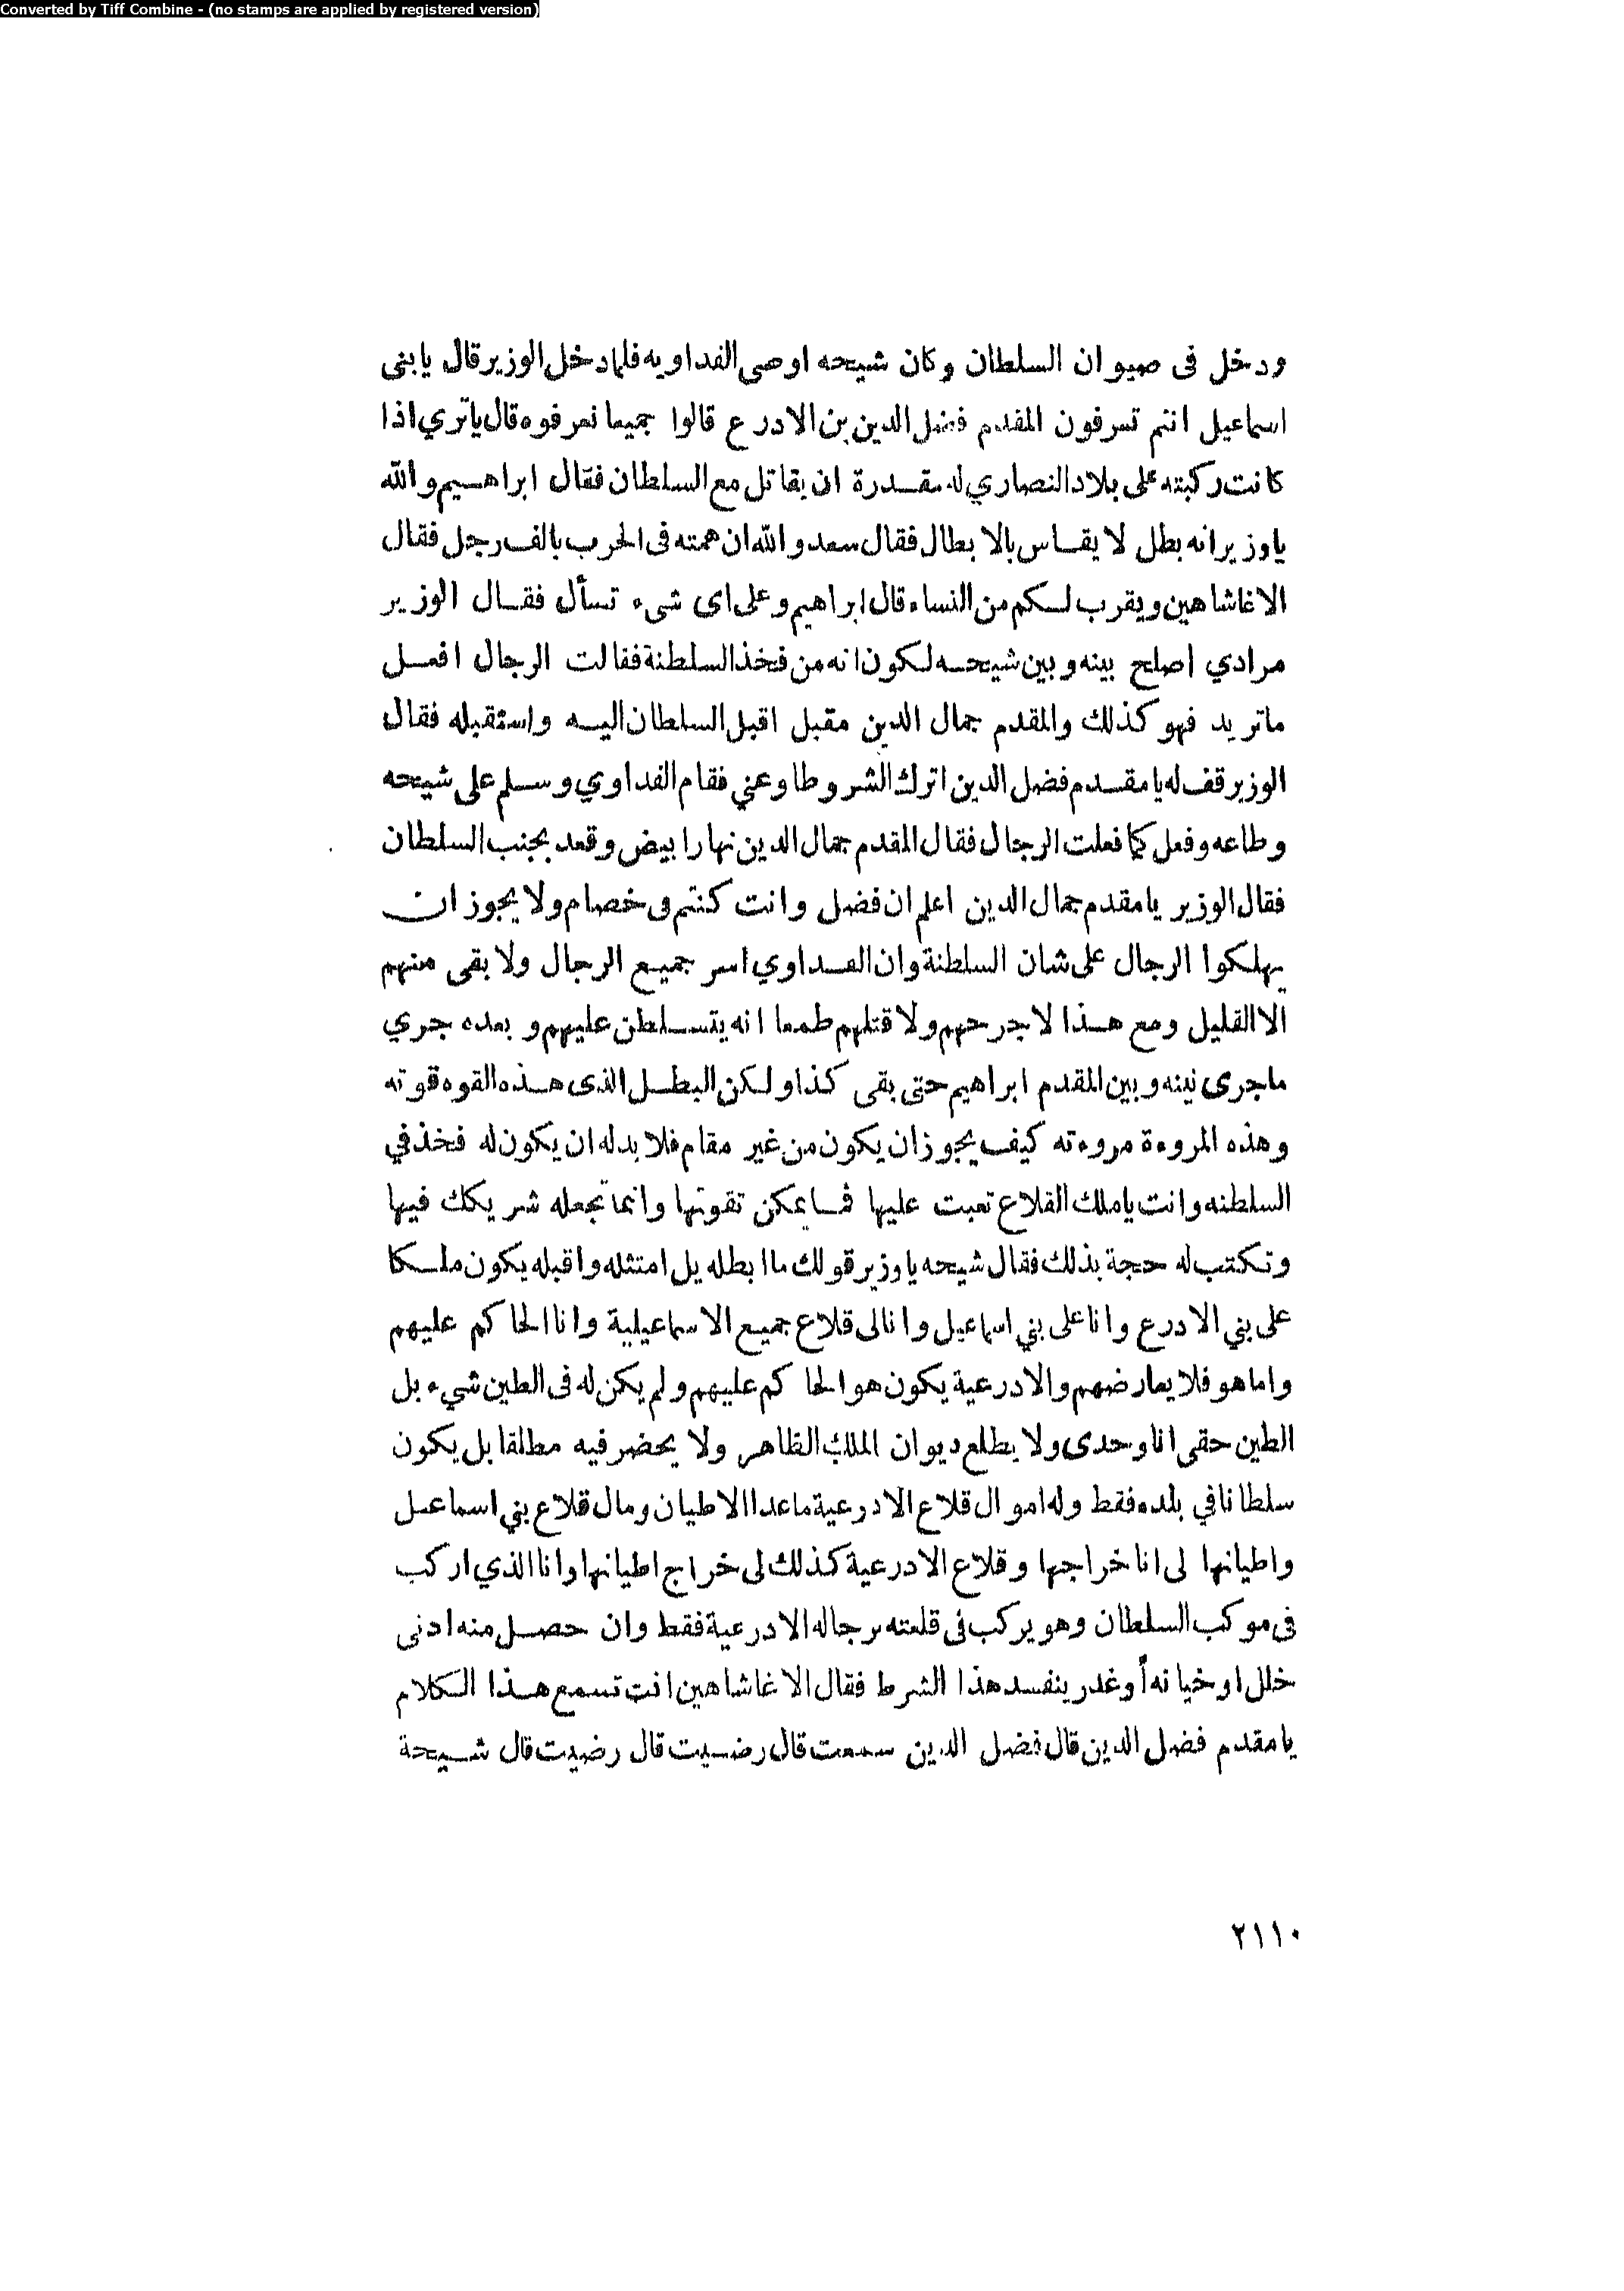 Converted by Tiff Combine - (no stamps are applied by registered version)
ودخل فى صيوان السلطان وكان شيحه اوصى الفداويه فلما دخل الوزير قال يابنى
اسماعيل انتم تعرفون المقدم فضل الدين بن الادرع قالوا جميعا نعرفوه قال ياترى اذا
كانت ركبته على بلاد النصارى له مقدرة ان يقاتل مع السلطان فقال ابراهيم والله
ياوزير انه بطل لا يقاس بالابطال فقال سعد والله ان همته فى الحرب بالف رجل فقال
الاغا شاهين ويقرب لكم من النساء قال ابراهيم وعلى اى شىء تسأل فقال الوزير
مرادي اصلح بينه وبين شيحه لكون انه من فخذ السلطنة فقالت الرجال افعل
ماتريد فهو كذلك والمقدم جمال الدين مقبل اقبل السلطان اليه واستقبله فقال
الوزير قف له يا مقدم فضل الدين اترك الشر وطاوعني فقام الفداوي وسلم على شيحه
وطاعه وفعل كما فعلت الرجال فقال المقدم جمال الدين نهارا بيض وقعد بجنب السلطان
فقال الوزير يا مقدم جمال الدين اعلم ان فضل وانت كنتم فى خصام ولا يجوز ان
يهلكوا الرجال على شان السلطنة وان الفداوي اسر جميع الرجال ولا بقى منهم
الا القليل ومع هذا لا جرحهم ولا قتلهم طمعا انه يتسلطن عليهم وبعده جري
ماجرى نينه وبين المقدم ابراهيم حتى بقى كذا ولكن البطل الذى هذه القوه قوته
وهذه المروءة مروءته كيف يجوز ان يكون من غير مقام فلا بد له ان يكون له فخذ في
السلطنه وانت ياملك القلاع تعبت عليها فما يمكن تفوتها وانما تجعله شريكك فيها
وتكتب له حجة بذلك فقال شيحه ياوزير قولك ما ابطله يل امتثله واقبله يكون ملكا
على بني الادرع وانا على بني اسماعيل وانالى قلاع جميع الاسماعيلية وانا الحاكم عليهم
واما هو فلا يعارضهم والادرعية يكون هو الحاكم عليهم ولم يكن له فى الطين شيء بل
الطين حقى انا وحدى ولا يطلع ديوان الملك الظاهر ولا يحضر فيه مطلقا بل يكون
سلطانا في بلده فقط وله اموال قلاع الادرعية ماعدا الاطيان ومال قلاع بني اسماعيل
واطيانها لى انا خراجها وقلاع الادرعية كذلك لى خراج اطيانها وانا الذي اركب
فى موكب السلطان وهو يركب فى قلعته برجاله الادرعية فقط وان حصل منه ادنى
خلل او خيانه أو غدر ينفسد هذا الشرط فقال الاغا شاهين انت تسمع هذا الكلام
يا مقدم فضل الدين قال فضل الدين سمعت قال رضيت قال رضيت قال شيحة
٢١١٠